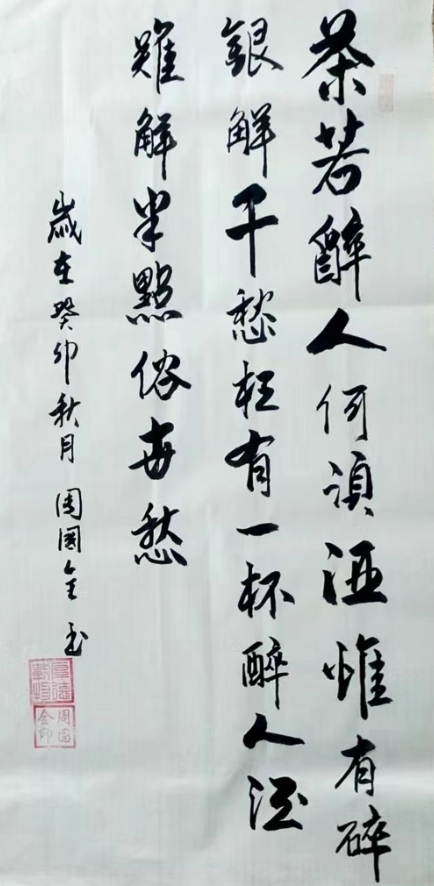 茶若醉人何須酒惟有碎
銀解千愁枉有一杯醉人酒
難解半點俗世愁
歲在癸卯秋月周國全書
厚德載物
周國全印